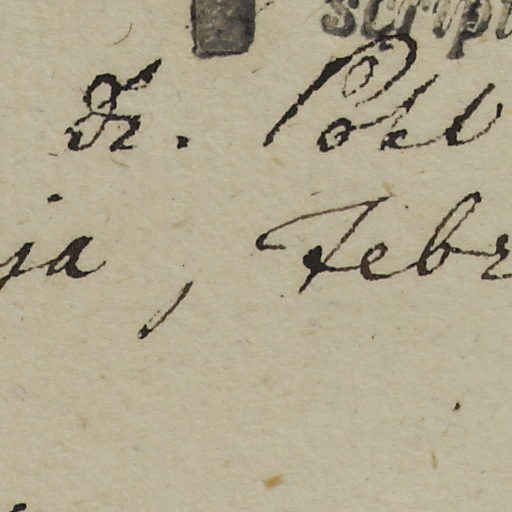 script
Dr. Pohl
ja, Febr